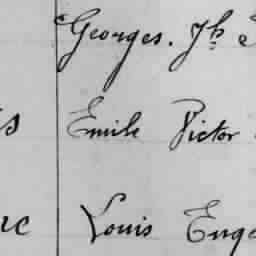 Georges. Jh
Emile Victor
Louis Euge